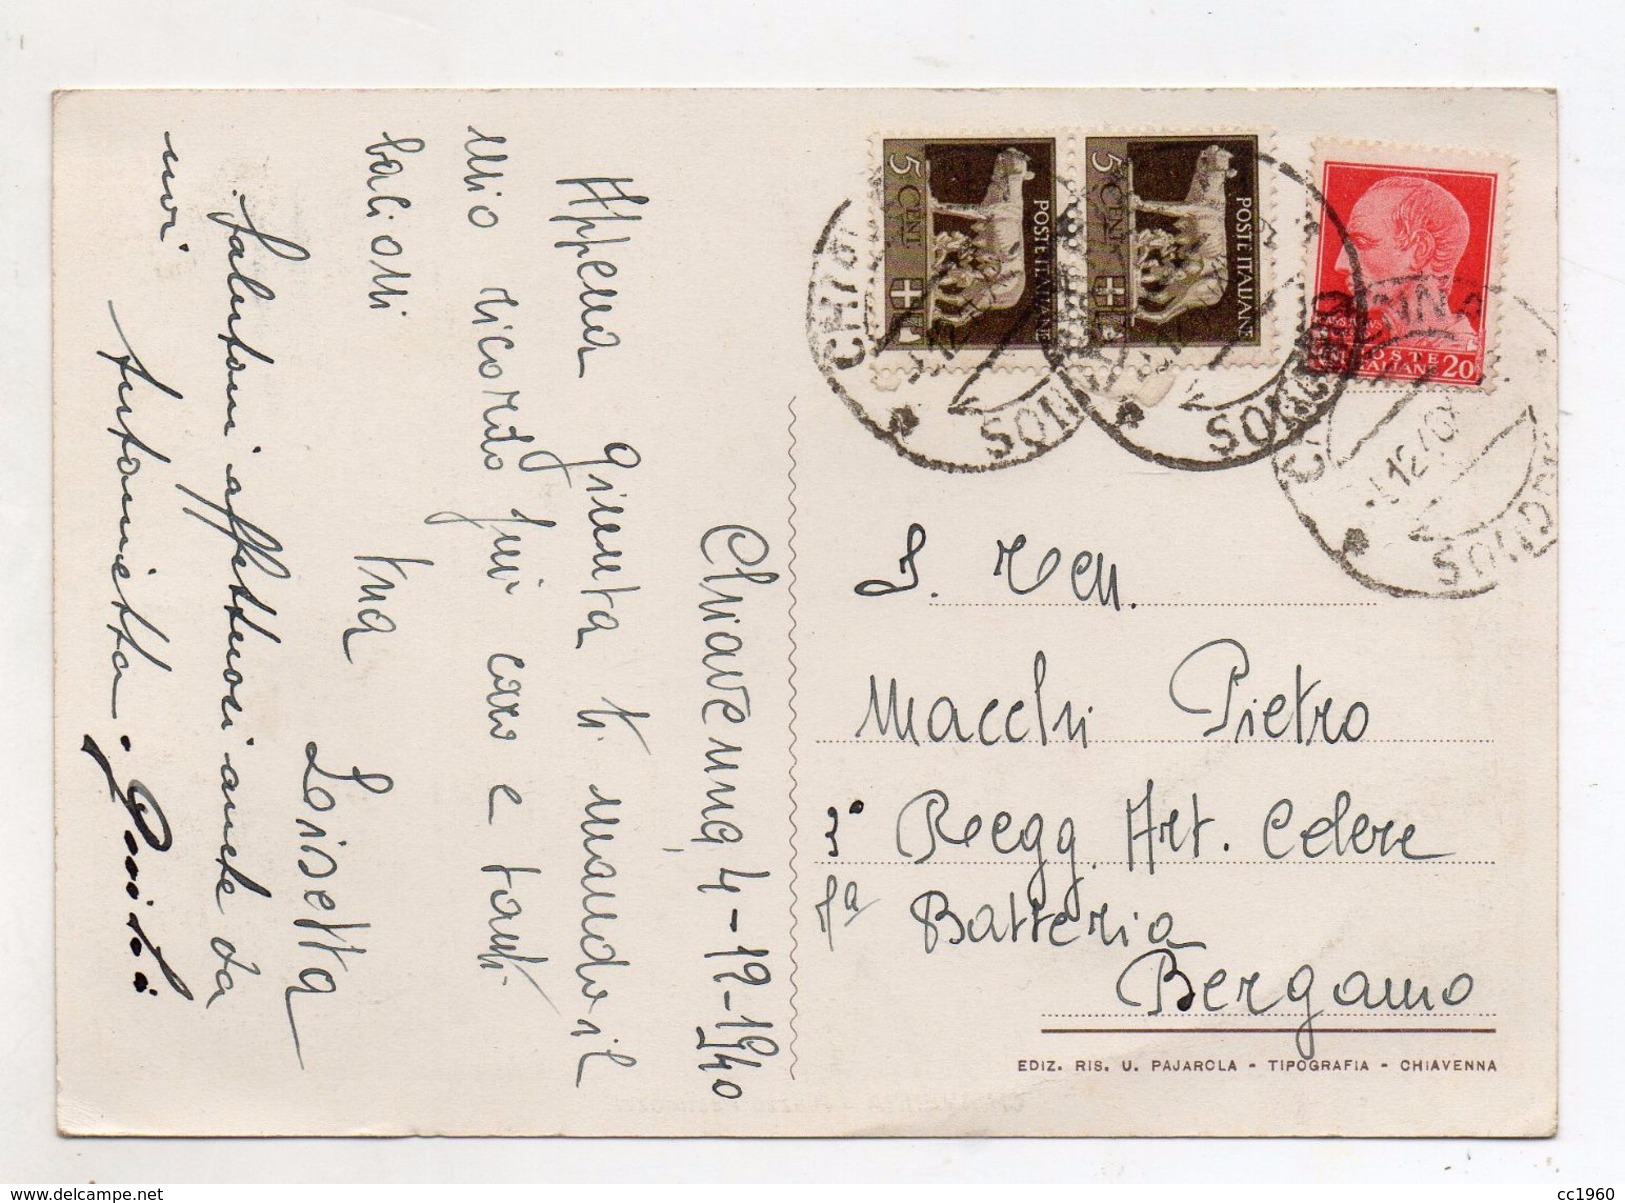 Chiavenna, 4-12-1940
Appena giunta ti mando il
mio ricordo più caro e tanti
bacioni
tua
Loisetta
Salutoni affettuosi anche da
noi
Antonietta.
S. Ten.
Macchi Pietro
3° Regg. Art. Celere
1ª Batteria
Bergamo
EDIZ. RIS. U. PAJAROLA - TIPOGRAFIA - CHIAVENNA
5 CENT
POSTE ITALIANE
5 CENT
POSTE ITALIANE
POSTE
ITALIANE 20
SONDRIO
SONDRIO
SONDRIO
www.delcampe.net
cc1960